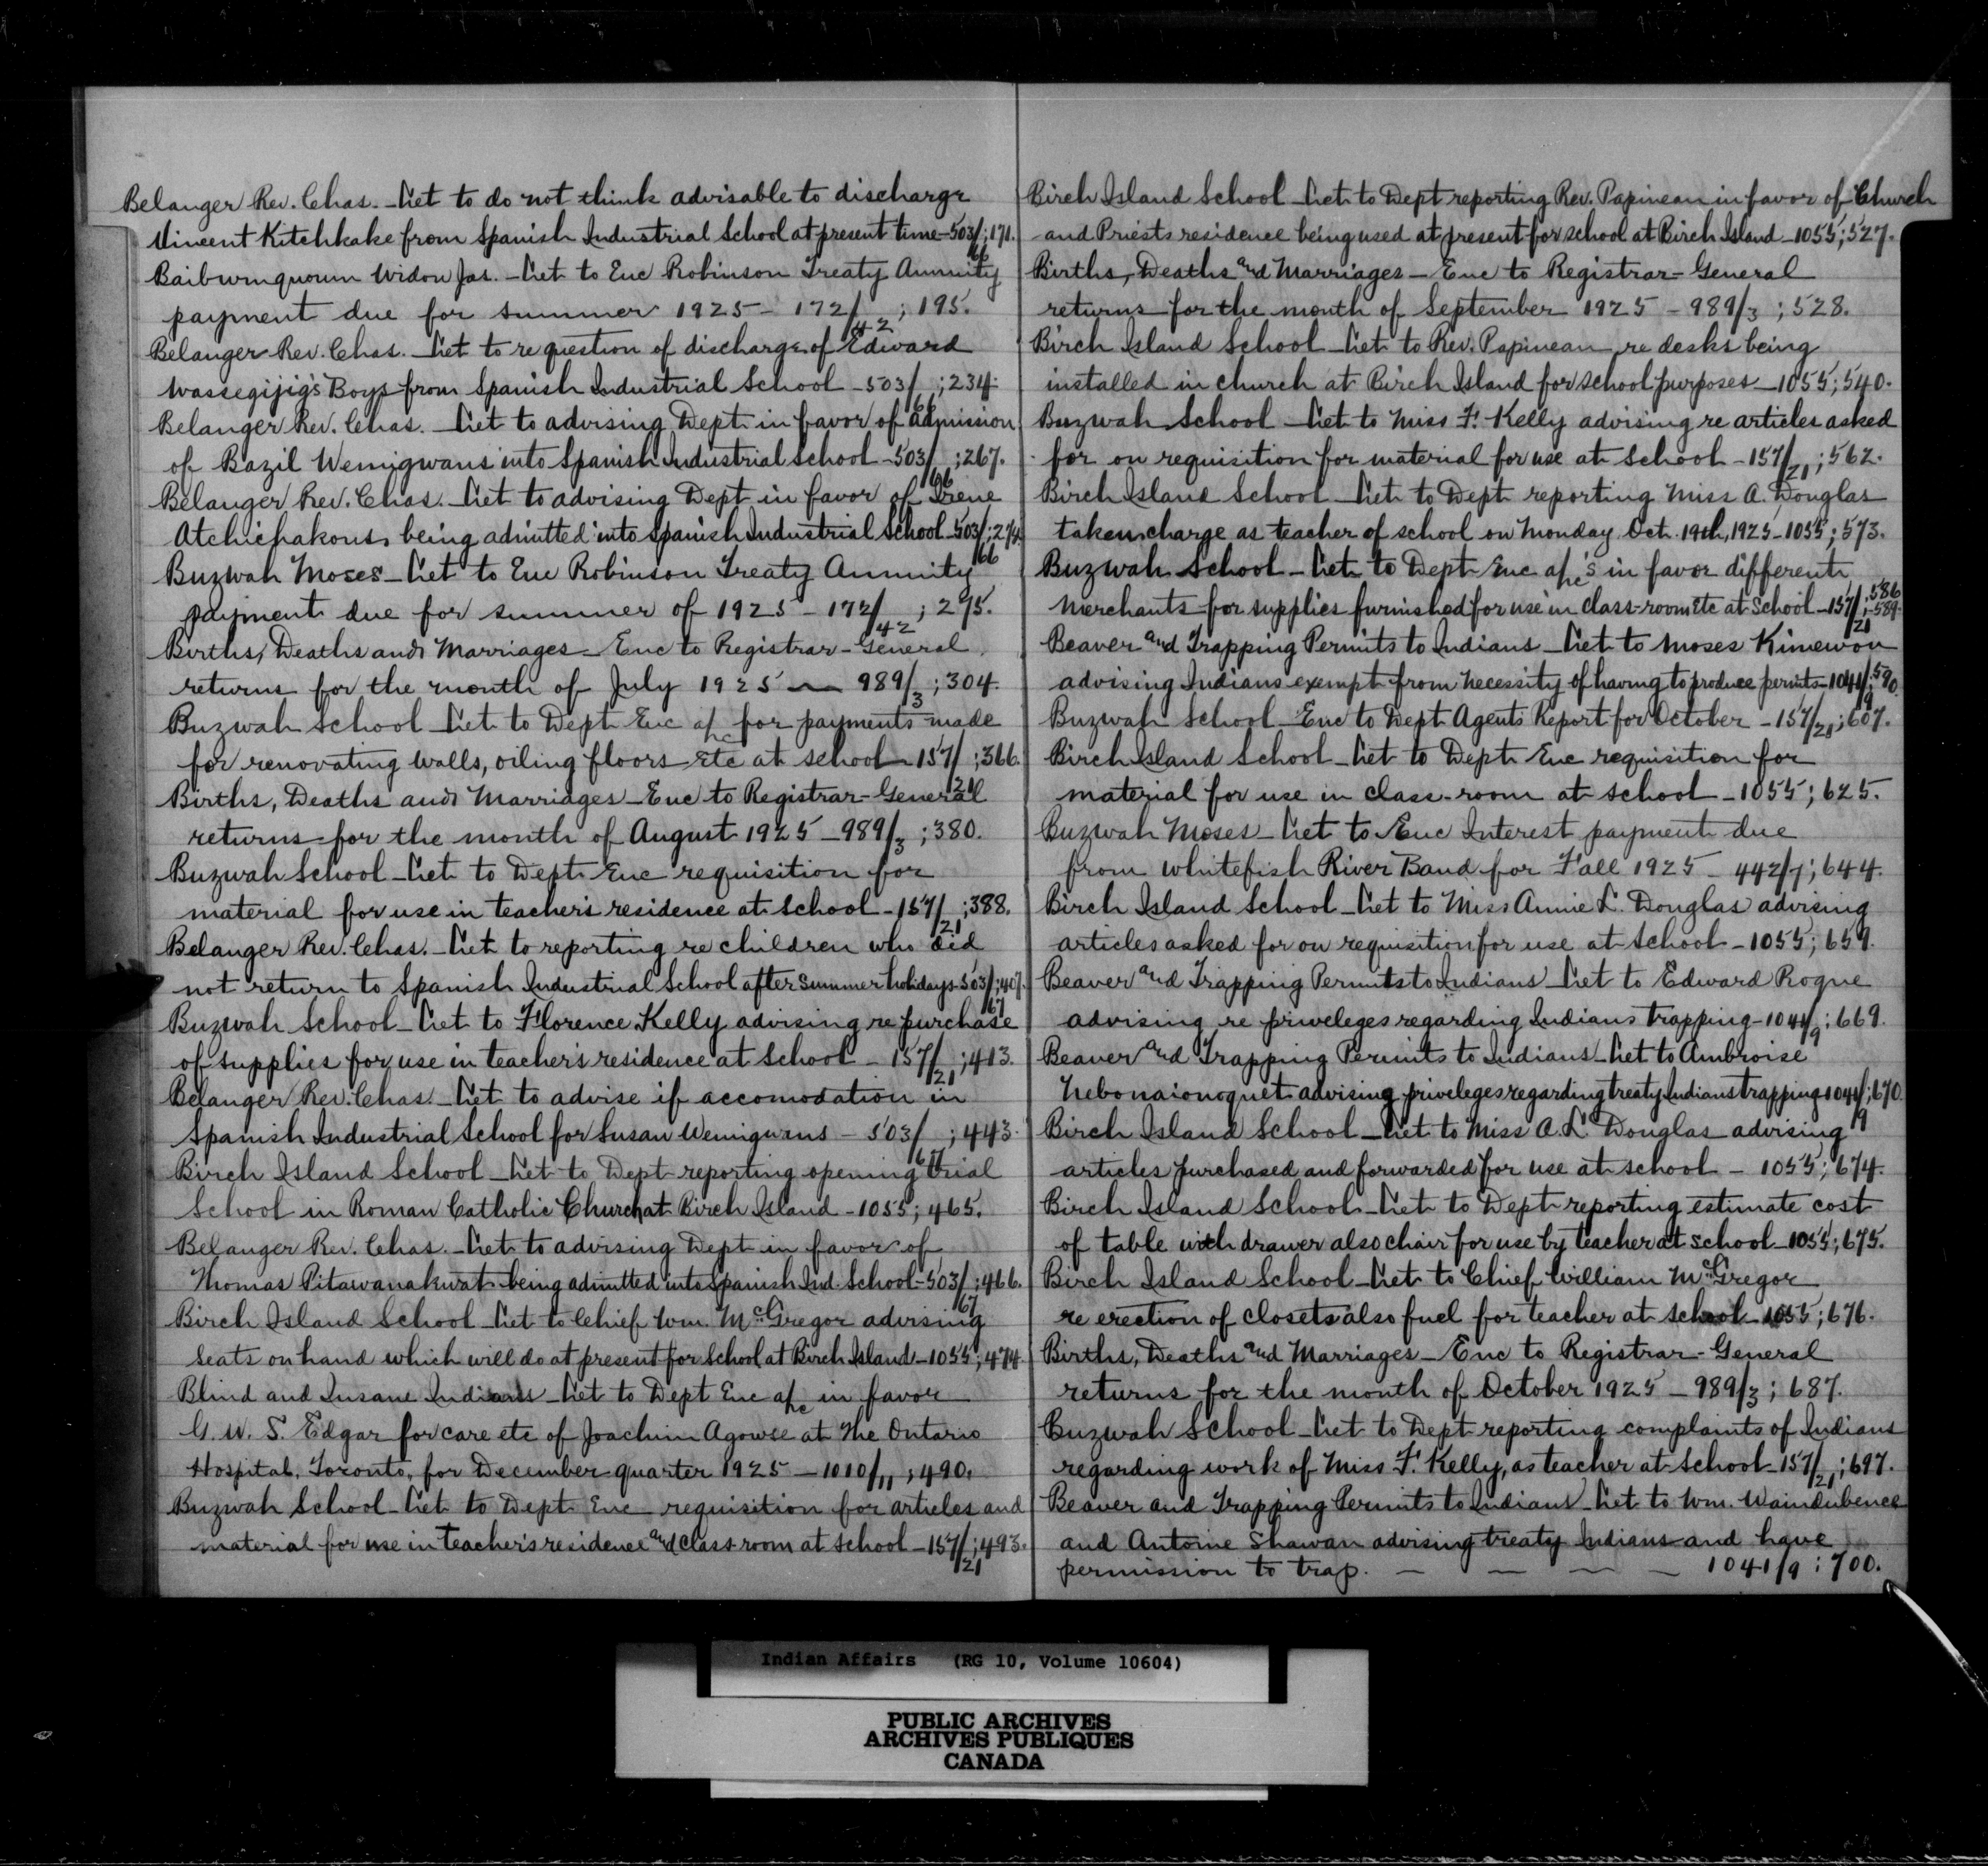 Belanger Rev. Chas. - Let to do not think advisable to discharge
Vincent Kitchkake from Spanish Industrial School at present time - 503/66; 171.
Baibumquoum Widow Jas. - Let to Enc Robinson Treaty Annuity
payment due for summer 1925 - 172/42; 195.
Belanger Rev. Chas. Let to re question of discharge of Edward
Wassegijig's Boys from Spanish Industrial School - 503/66; 234.
Belanger Rev. Chas. - Let to advising Dept in favor of admission
of Bazil Wemigwans into Spanish Industrial School - 503/66; 267.
Belanger Rev. Chas. Let to advising Dept in favor of Irene
Atchichakous being admitted into Spanish Industrial School - 503/66; 274.
Buzwah Moses - Let to Enc Robinson Treaty Annuity
payment due for summer of 1925 - 172/42; 275.
Births, Deaths and Marriages - Enc to Registrar-General
returns for the month of July 1925 - 989/3; 304.
Buzwah School - Let to Dept Enc a/c for payments made
for renovating walls, oiling floors etc at school - 157/21; 366.
Births, Deaths and Marriages - Enc to Registrar-General
returns for the month of August 1925 - 989/3; 380.
Buzwah School - Let to Dept Enc requisition for
material for use in teacher's residence at School - 157/21; 388.
Belanger Rev. Chas. - Let to reporting re children who did
not return to Spanish Industrial School after Summer holidays - 503/67; 407.
Buzwah School - Let to Florence Kelly advising re purchase
of supplies for use in teacher's residence at School - 157/21; 413.
Belanger Rev. Chas. - Let to advise if accomodation in
Spanish Industrial School for Susan Wemigwans - 503/67; 443.
Birch Island School - Let to Dept reporting opening trial
School in Roman Catholic Church at Birch Island - 1055; 465.
Belanger Rev. Chas. - Let to advising Dept in favor of
Thomas Pitawanakwat being admitted into Spanish Ind. School - 503/67; 466.
Birch Island School - Let to Chief Wm. McGregor advising
seats on hand which will do at present for School at Birch Island - 1055; 474.
Blind and Insane Indians - Let to Dept Enc a/c in favor
G. W. S. Edgar for care etc of Joachim Agowse at The Ontario
Hospital, Toronto, for December quarter 1925 - 1010/11; 490.
Buzwah School - Let to Dept Enc requisition for articles and
material for use in teacher's residence and class-room at School - 157/21; 493.
Birch Island School - Let to Dept reporting Rev. Papineau in favor of Church
and Priests residence being used at present for school at Birch Island - 1055; 527.
Births, Deaths and Marriages - Enc to Registrar-General
returns for the month of September 1925 - 989/3; 528.
Birch Island School - Let to Rev. Papineau re desks being
installed in church at Birch Island for school purposes - 1055; 540.
Buzwah School - Let to Miss F. Kelly advising re articles asked
for on requisition for material for use at School - 157/21; 562.
Birch Island School - Let to Dept reporting Miss A. Douglas
taken charge as teacher of school on Monday Oct. 19th, 1925 - 1055; 573.
Buzwah School - Let to Dept Enc a/c's in favor different
Merchants for supplies furnished for use in class-room etc at School - 157/21; 586-589.
Beaver and Trapping Permits to Indians - Let to Moses Kimewon
advising Indians exempt from necessity of having to produce permits - 1041/9; 590.
Buzwah School - Enc to Dept Agents Report for October - 157/21; 607.
Birch Island School - Let to Dept Enc requisition for
material for use in class-room at School - 1055; 625.
Buzwah Moses - Let to Enc Interest payment due
from Whitefish River Band for Fall 1925 - 442/7; 644.
Birch Island School - Let to Miss Annie L. Douglas advising
articles asked for on requisition for use at School - 1055; 659.
Beaver and Trapping Permits to Indians - Let to Edward Rogue
advising re priveleges regarding Indians trapping - 1041/9; 669.
Beaver and Trapping Permits to Indians - Let to Ambroise
Nebonaionoquet advising priveleges regarding treaty Indians trapping 1041/9; 670.
Birch Island School - Let to Miss A. L. Douglas advising
articles purchased and forwarded for use at school - 1055; 674.
Birch Island School - Let to Dept reporting estimate cost
of table with drawer also chair for use by teacher at School - 1055; 675.
Birch Island School - Let to Chief William McGregor
re erection of closets also fuel for teacher at School - 1055; 676.
Births, Deaths and Marriages - Enc to Registrar-General
returns for the month of October 1925 - 989/3; 687.
Buzwah School - Let to Dept reporting complaints of Indians
regarding work of Miss F. Kelly, as teacher at School - 157/21; 697.
Beaver and Trapping Permits to Indians - Let to Wm. Waindubence
and Antoine Shawan advising treaty Indians and have
permission to trap. - - - - 1041/9; 700.
Indian Affairs (RG 10, Volume 10604)
PUBLIC ARCHIVES
ARCHIVES PUBLIQUES
CANADA